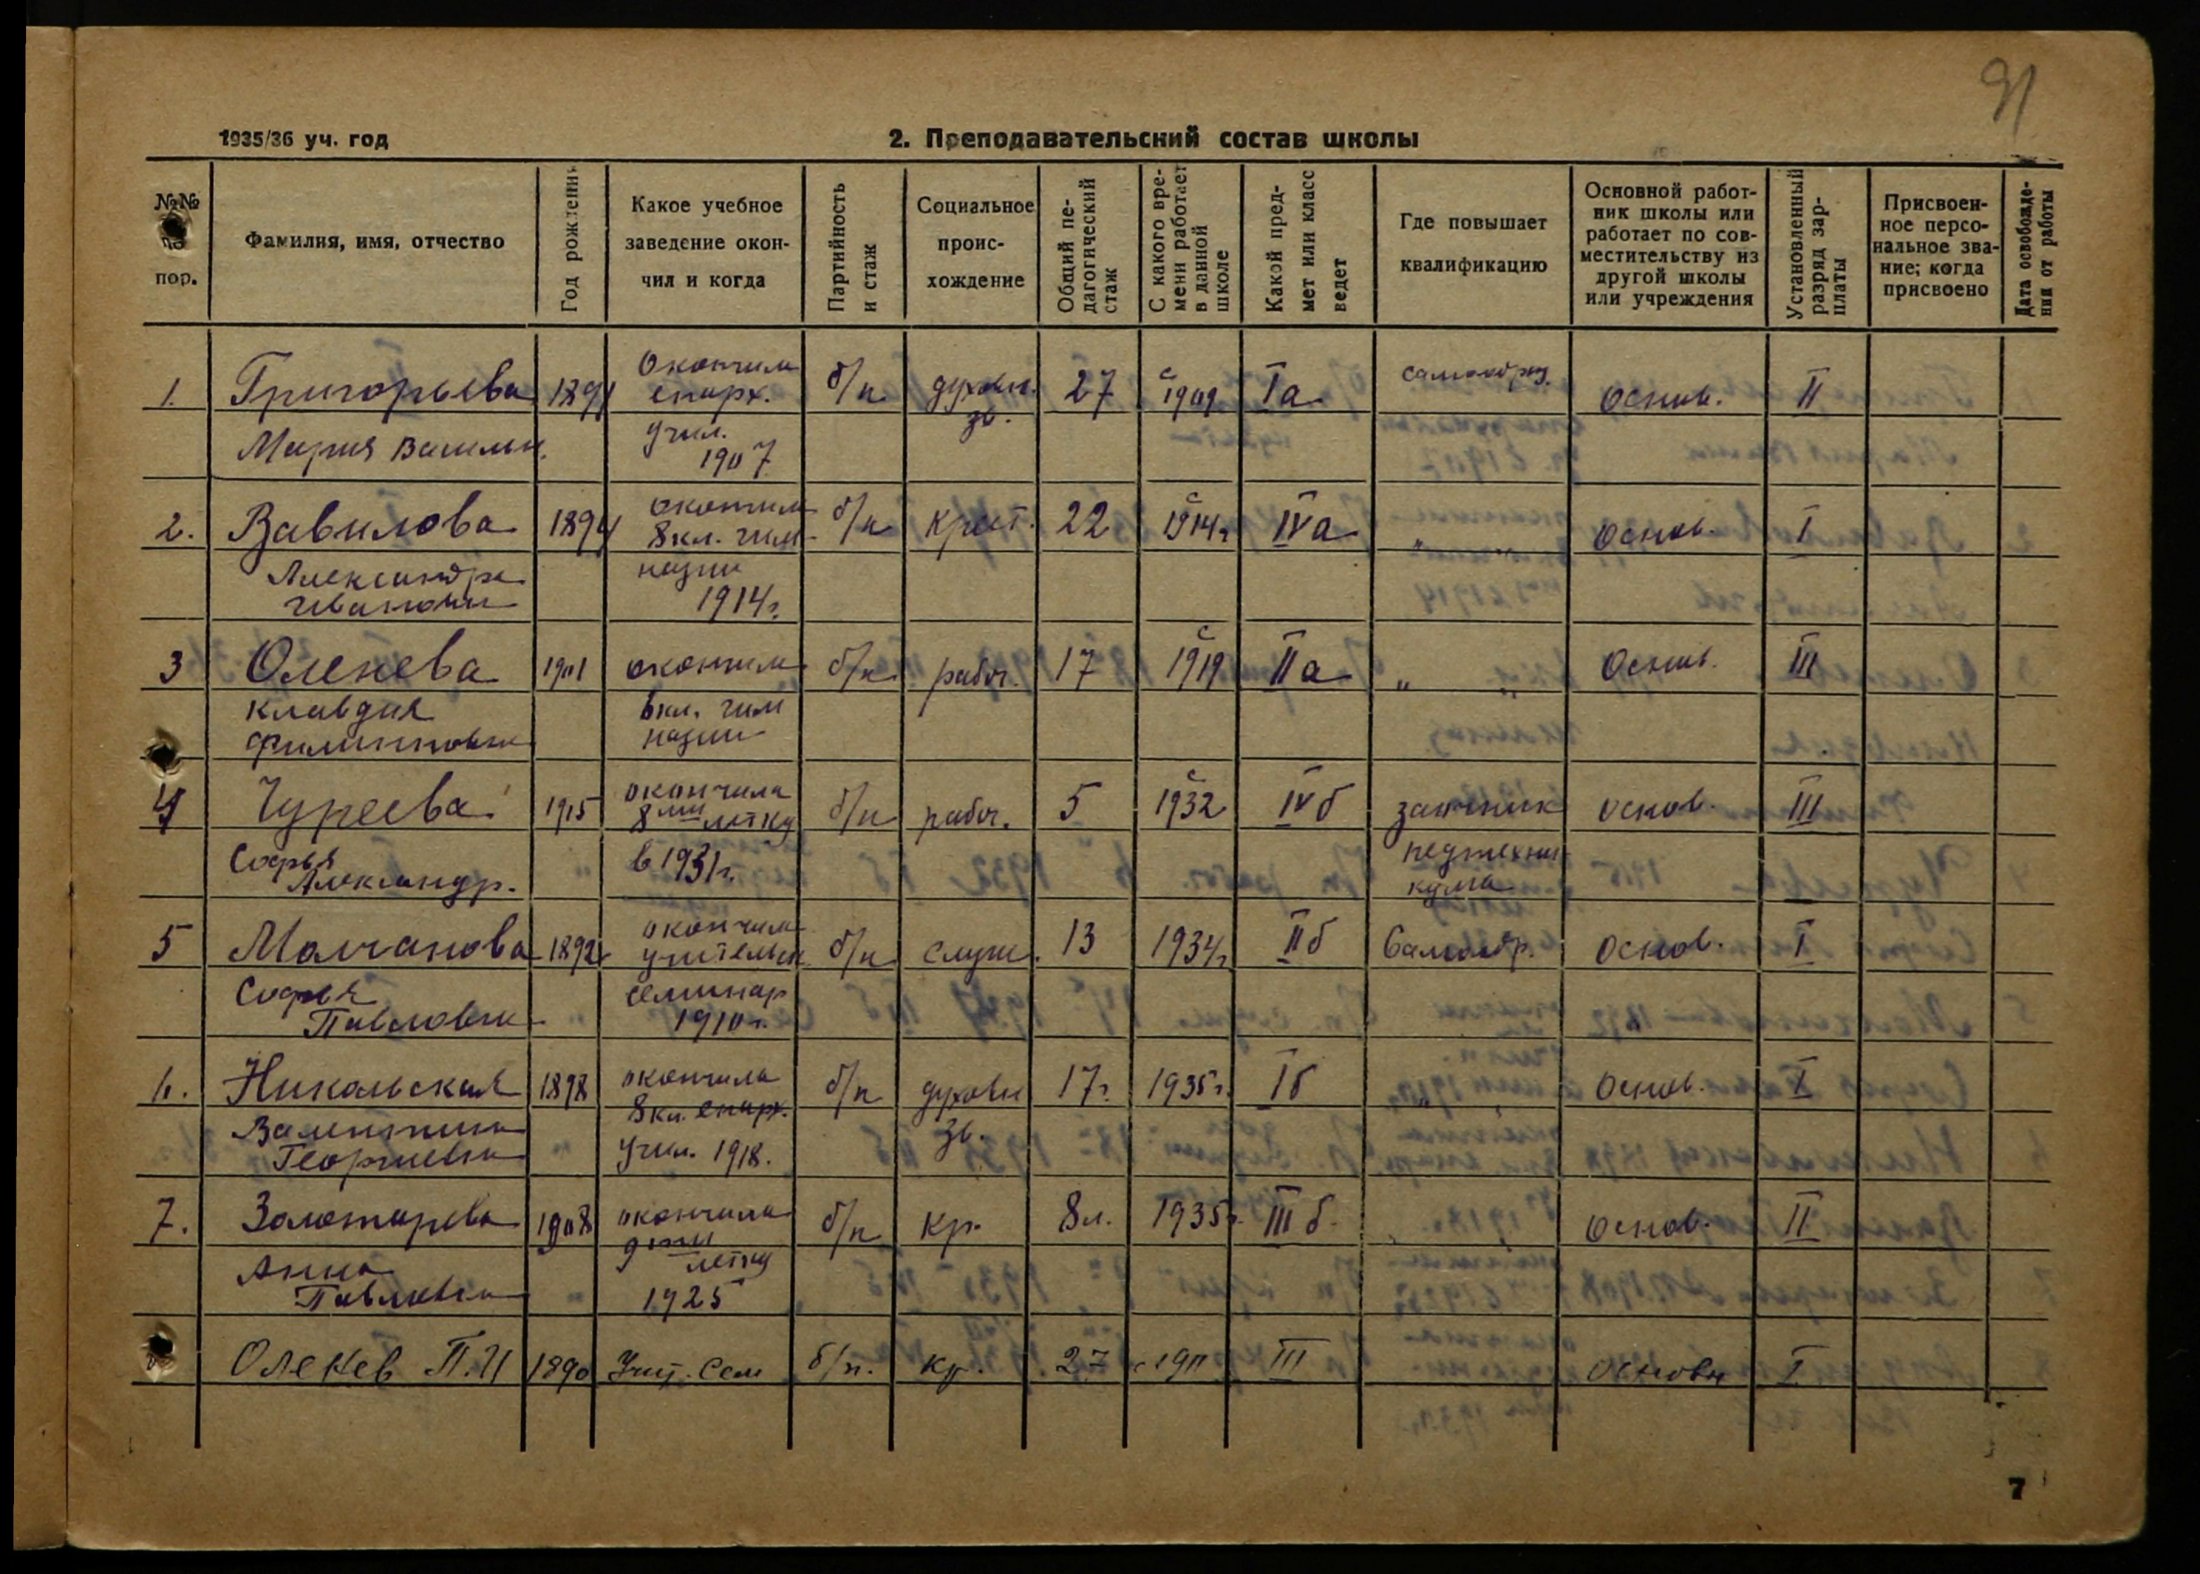 91
1935/36 уч. год
2. Преподавательский состав школы
№№ по пор.
Фамилия, имя, отчество
Год рождения
Какое учебное заведение окончил и когда
Партийность и стаж
Социальное происхождение
Общий педагогический стаж
С какого времени работает в данной школе
Какой предмет или класс ведет
Где повышает квалификацию
Основной работник школы или работает по совместительству из другой школы или учреждения
Установленный разряд зарплаты
Присвоенное персональное звание; когда присвоено
Дата освобождения от работы
1. Григорьева 1891 Окончила епарх. б/п духовн. зв. 27 с 1909 Iа самообраз. основ. II
Мария Васильн. учил. 1907
2. Вавилова 1894 окончила 8 кл. гим- б/п крест. 22 с 1914г IVа „ „ основ. I
Александра Ивановн назии 1914г.
3 Оленева 1901 окончила б/п рабоч. 17 с 1919 IIа „ „ Основ. III
Клавдия Филипповн кл. гим назии
4 Чуреева 1915 окончила 8ми летку б/п рабоч. 5 с 1932 IVб заочник основ. III
Софья Александр. в 1931г. педтехни кума
5 Молчанова 1892 окончила учительск б/п служ. 13 1934г IIб Самообр. основ. I
Софья Павловн семинар 1910г.
6. Никольская 1898 окончила 8 кл. епарх. б/п духовн зв. 17г 1935г. Iб „ основ. I
Валентина Георгиевн учил. 1918.
7. Золотарева 1908 окончила 9ти летку б/п кр. 8 л. 1935г. III б. основ. II
Анна Павловн 1925
Оленев П.И 1890 Учит. Сем б/п. кр. 27 с 1911 III основн I
7